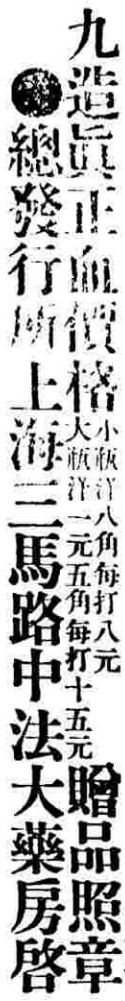 九造眞正血價格小瓶洋八角每打八元大瓶洋一元五角每打十五元贈品照章
總發行所上海三馬路中法大藥房啓